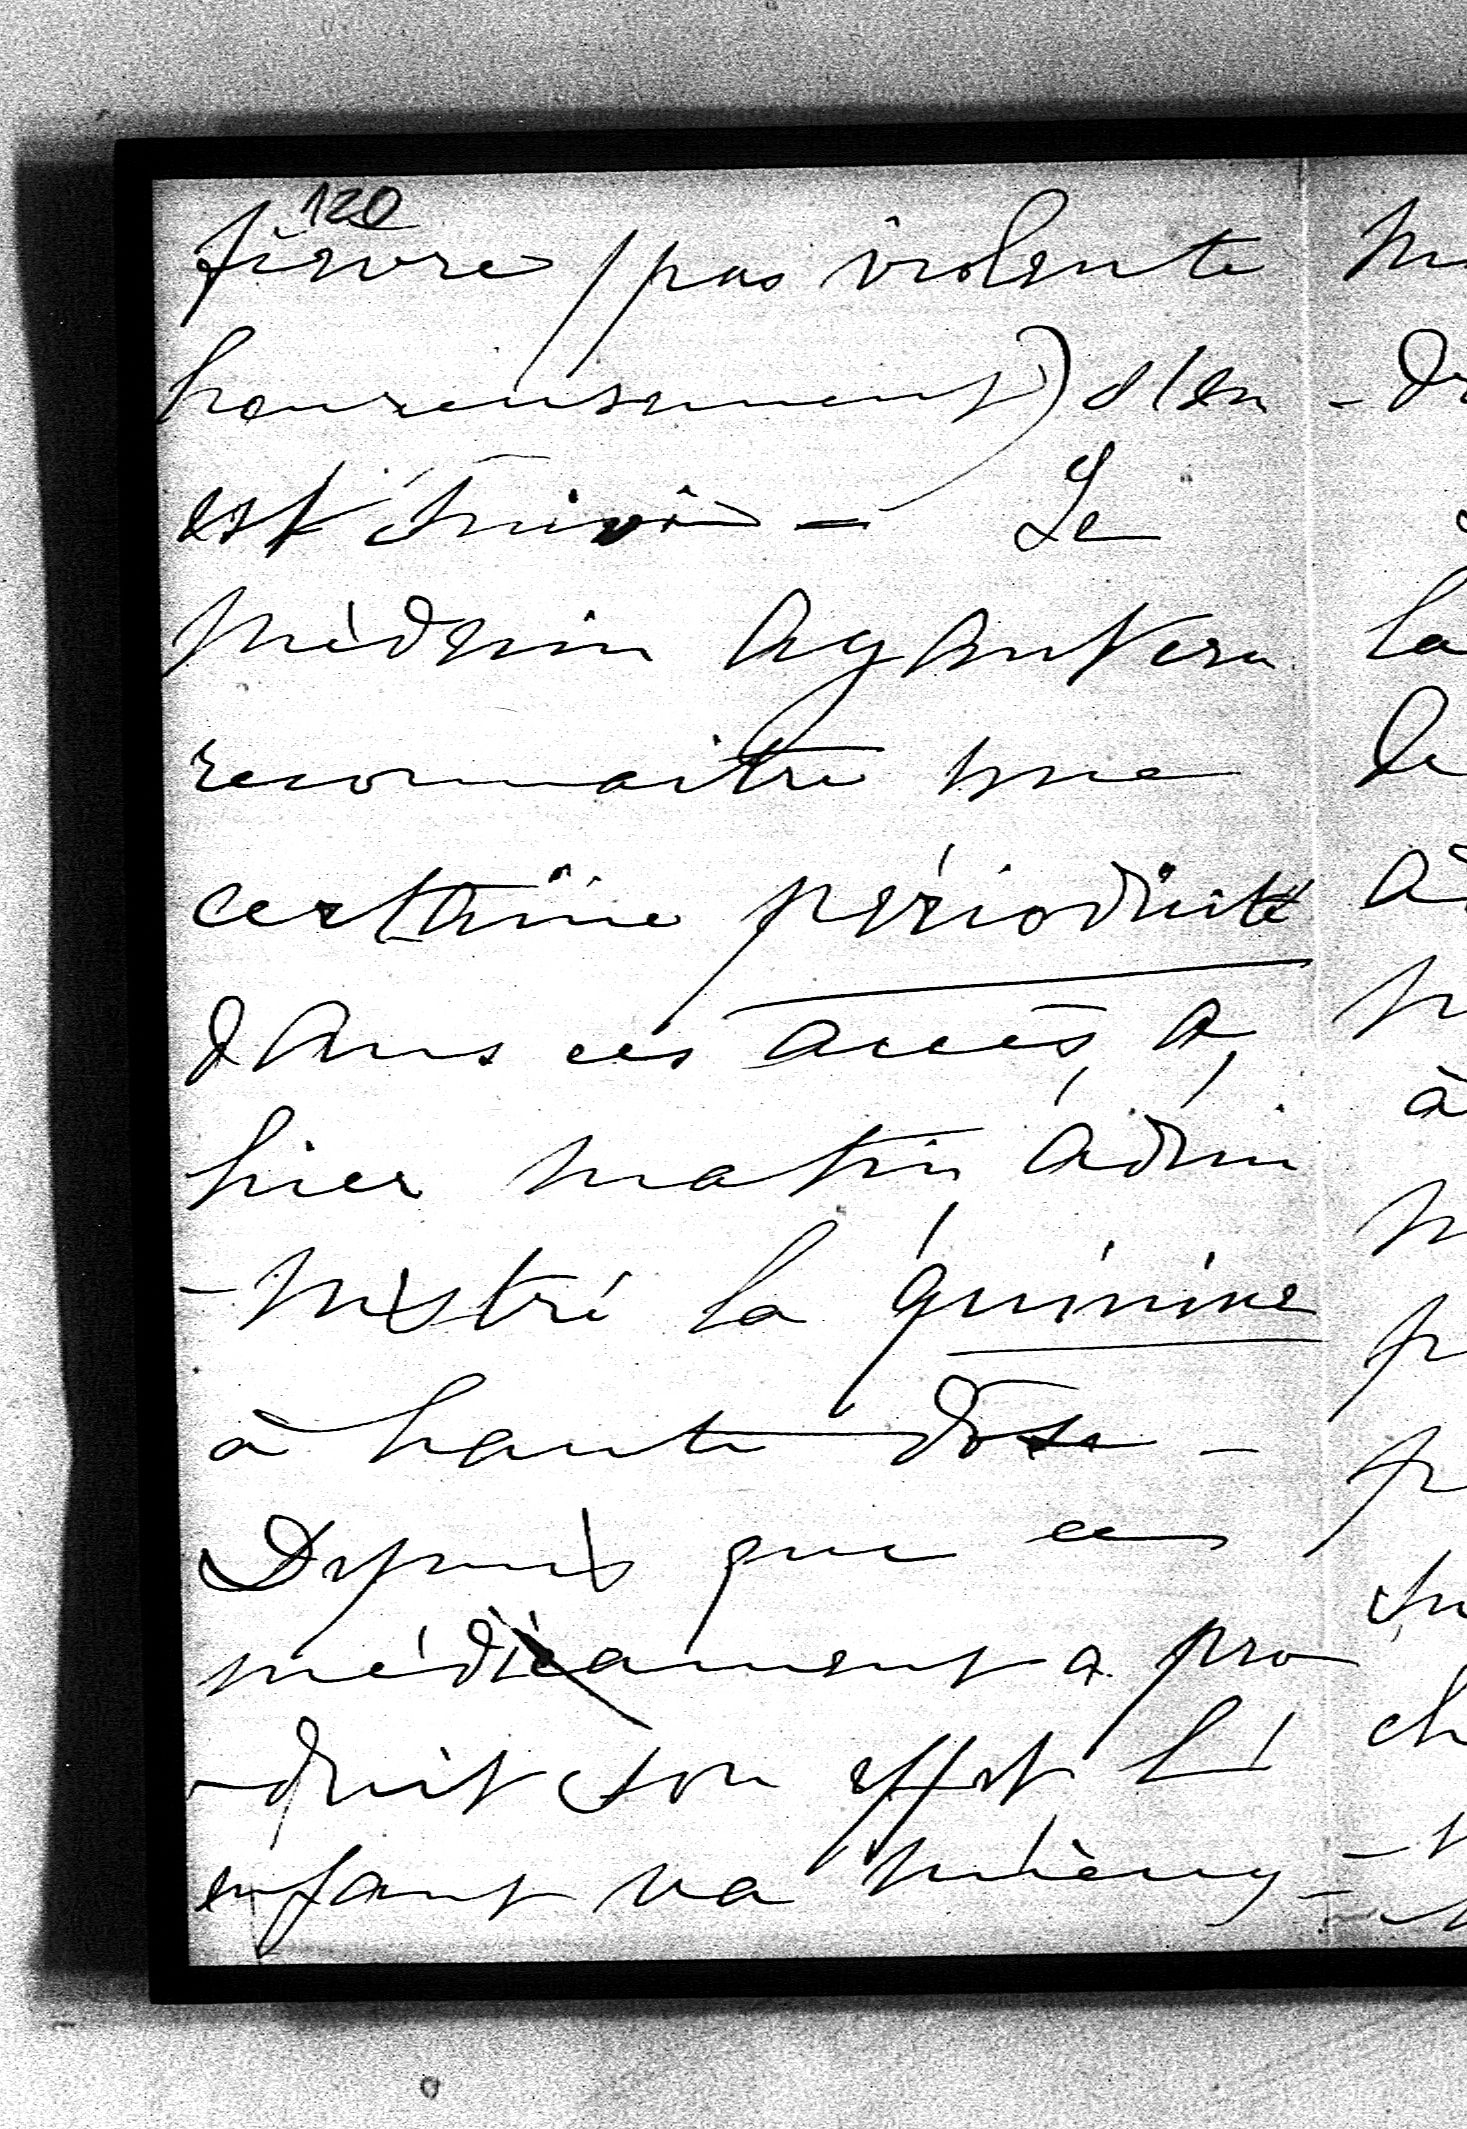 120
fièvre (pas violente
heureusement) s'en
est suivie - Le
Médecin ayant cru
reconnaitre une
certaine périodicité
dans ces accès, a,
hier matin, admi
-nistré la quinine
à haute dose -
Depuis que ce
médicament a pro
-duit son effet l'
enfant va mieux -
la
à